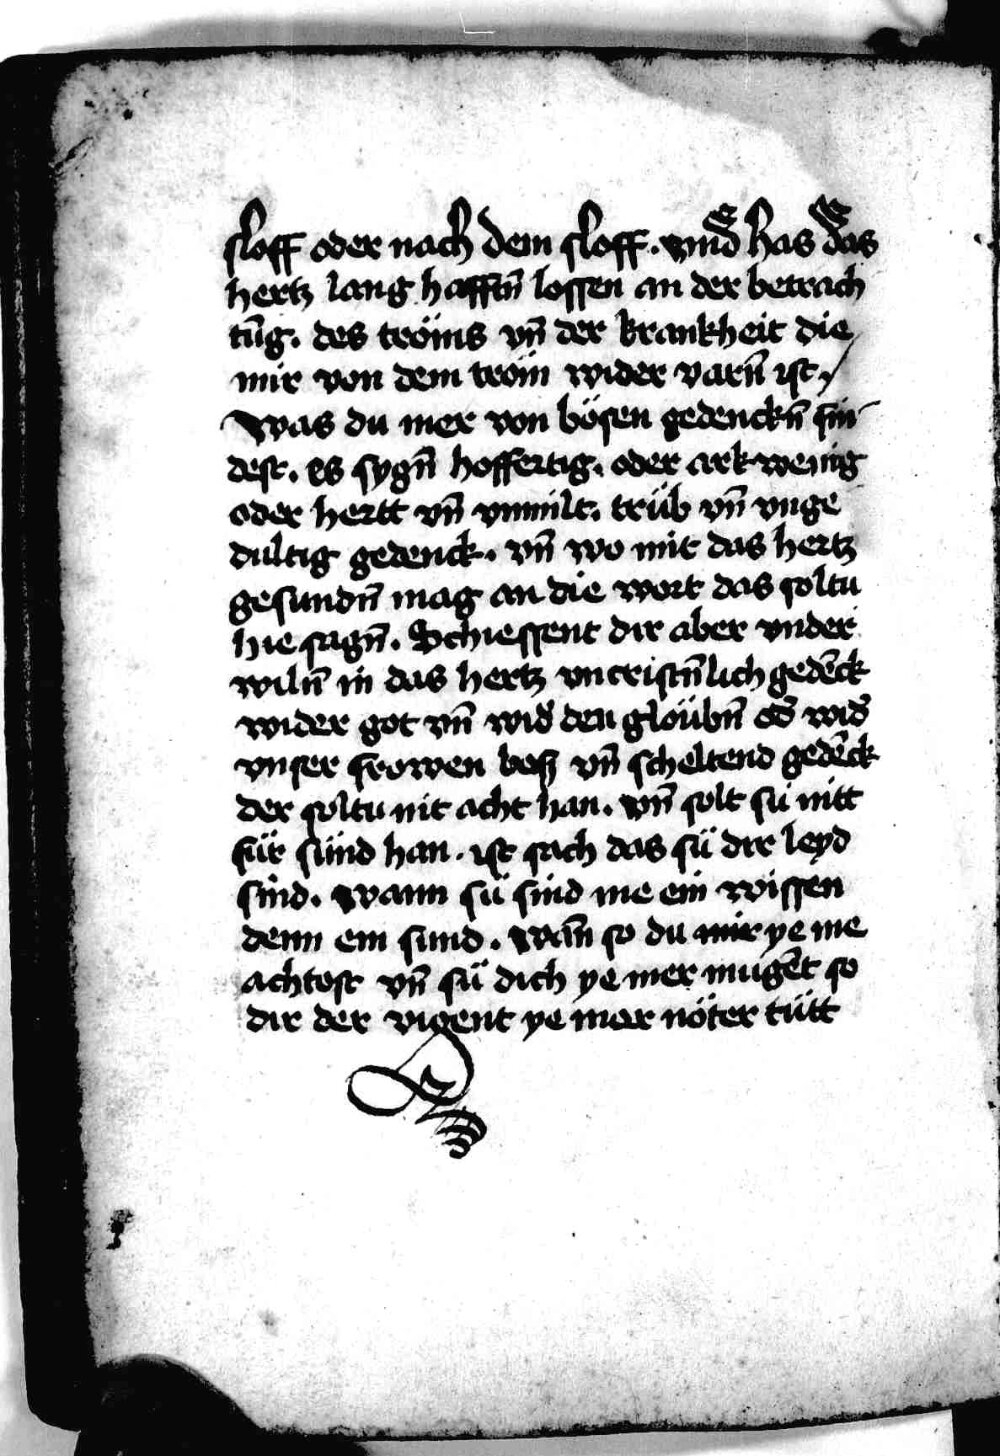 sloff oder nach dem sloff. vnd has das
hertz lang hafftn̄ lossen an der betrach
tūg. des tröms vn̄ der krankheit die
mir von dem tröm wider varn̄ ist,
Was du mer von bösen gedenckn̄ fin
dest. es sygn̄ hoffertig. oder ark wenig
oder hertt vn̄ vnmilt. trüb vn̄ vnge
dultig gedenck. vn̄ wo mit das hertz
gesundn̄ mag an die wort das soltu
hie sagn̄. Schiessent dir aber vnder
wiln̄ in das hertz vncristn̄lich gedēck
wider got vn̄ wid̄ den gloübn̄ od̄ wid̄
vnser frowen bos̄ vn̄ scheltend gedēck
der soltu nit acht han. vn̄ solt sü nitt
für sünd han. ist sach das sü dir leyd
sind. Wann sü sind me ein wissen
denn ein sünd. Wān so du mir ye me
achtost vn̄ sü dich ye mer mügēt so
dir der vigent ye mer nöter tütt